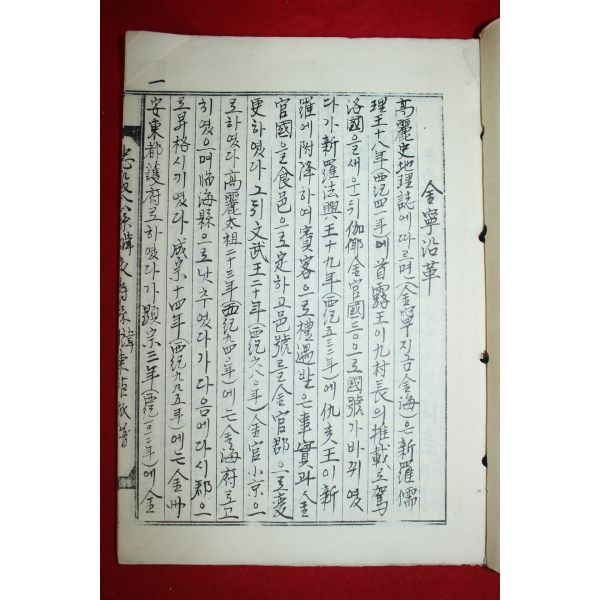 金寧沿革
高麗史地理誌에따르면(金寧지금金海)은新羅儒
理王十八年(西紀四一年)에首露王이九村長의推載로駕
洛國을새운뒤伽倻金官國등으로國號가바뀌였
다가新羅法興王十九年(西紀五三二年)에仇亥王이新
羅에附降하여賓客으로禮遇받은事實과金
官國을食邑으로定하고邑號를金官郡으로變
更하였다그뒤文武王二十年(西紀六八〇年)金官小京으
로하였다高麗太祖二十三年(西紀九四〇年)에는金海府로고
치였으며臨海縣으로낮추였다가다음에다시郡으
로昇格시키였다成宗十四年(西紀九九五年)에는金州
安東都護府로하였다가顯宗三年(西紀一〇一二年)에金
一